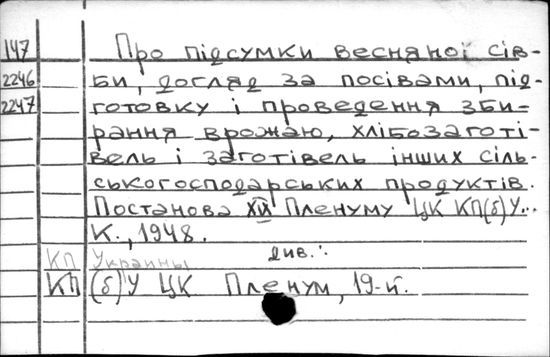 147 Про підсумки весняної сів-
2246 би, догляд за посівами, під-
2247 готовку і проведення зби-
рання врожаю, хлібозаготі-
вель і заготівель інших сіль-
ськогосподарських продуктів.
Постанова Пленуму ЦК КП(б)У...
К., 1948.
КП Украины див.:
КП(б)У ЦК Пленум, 19-й.